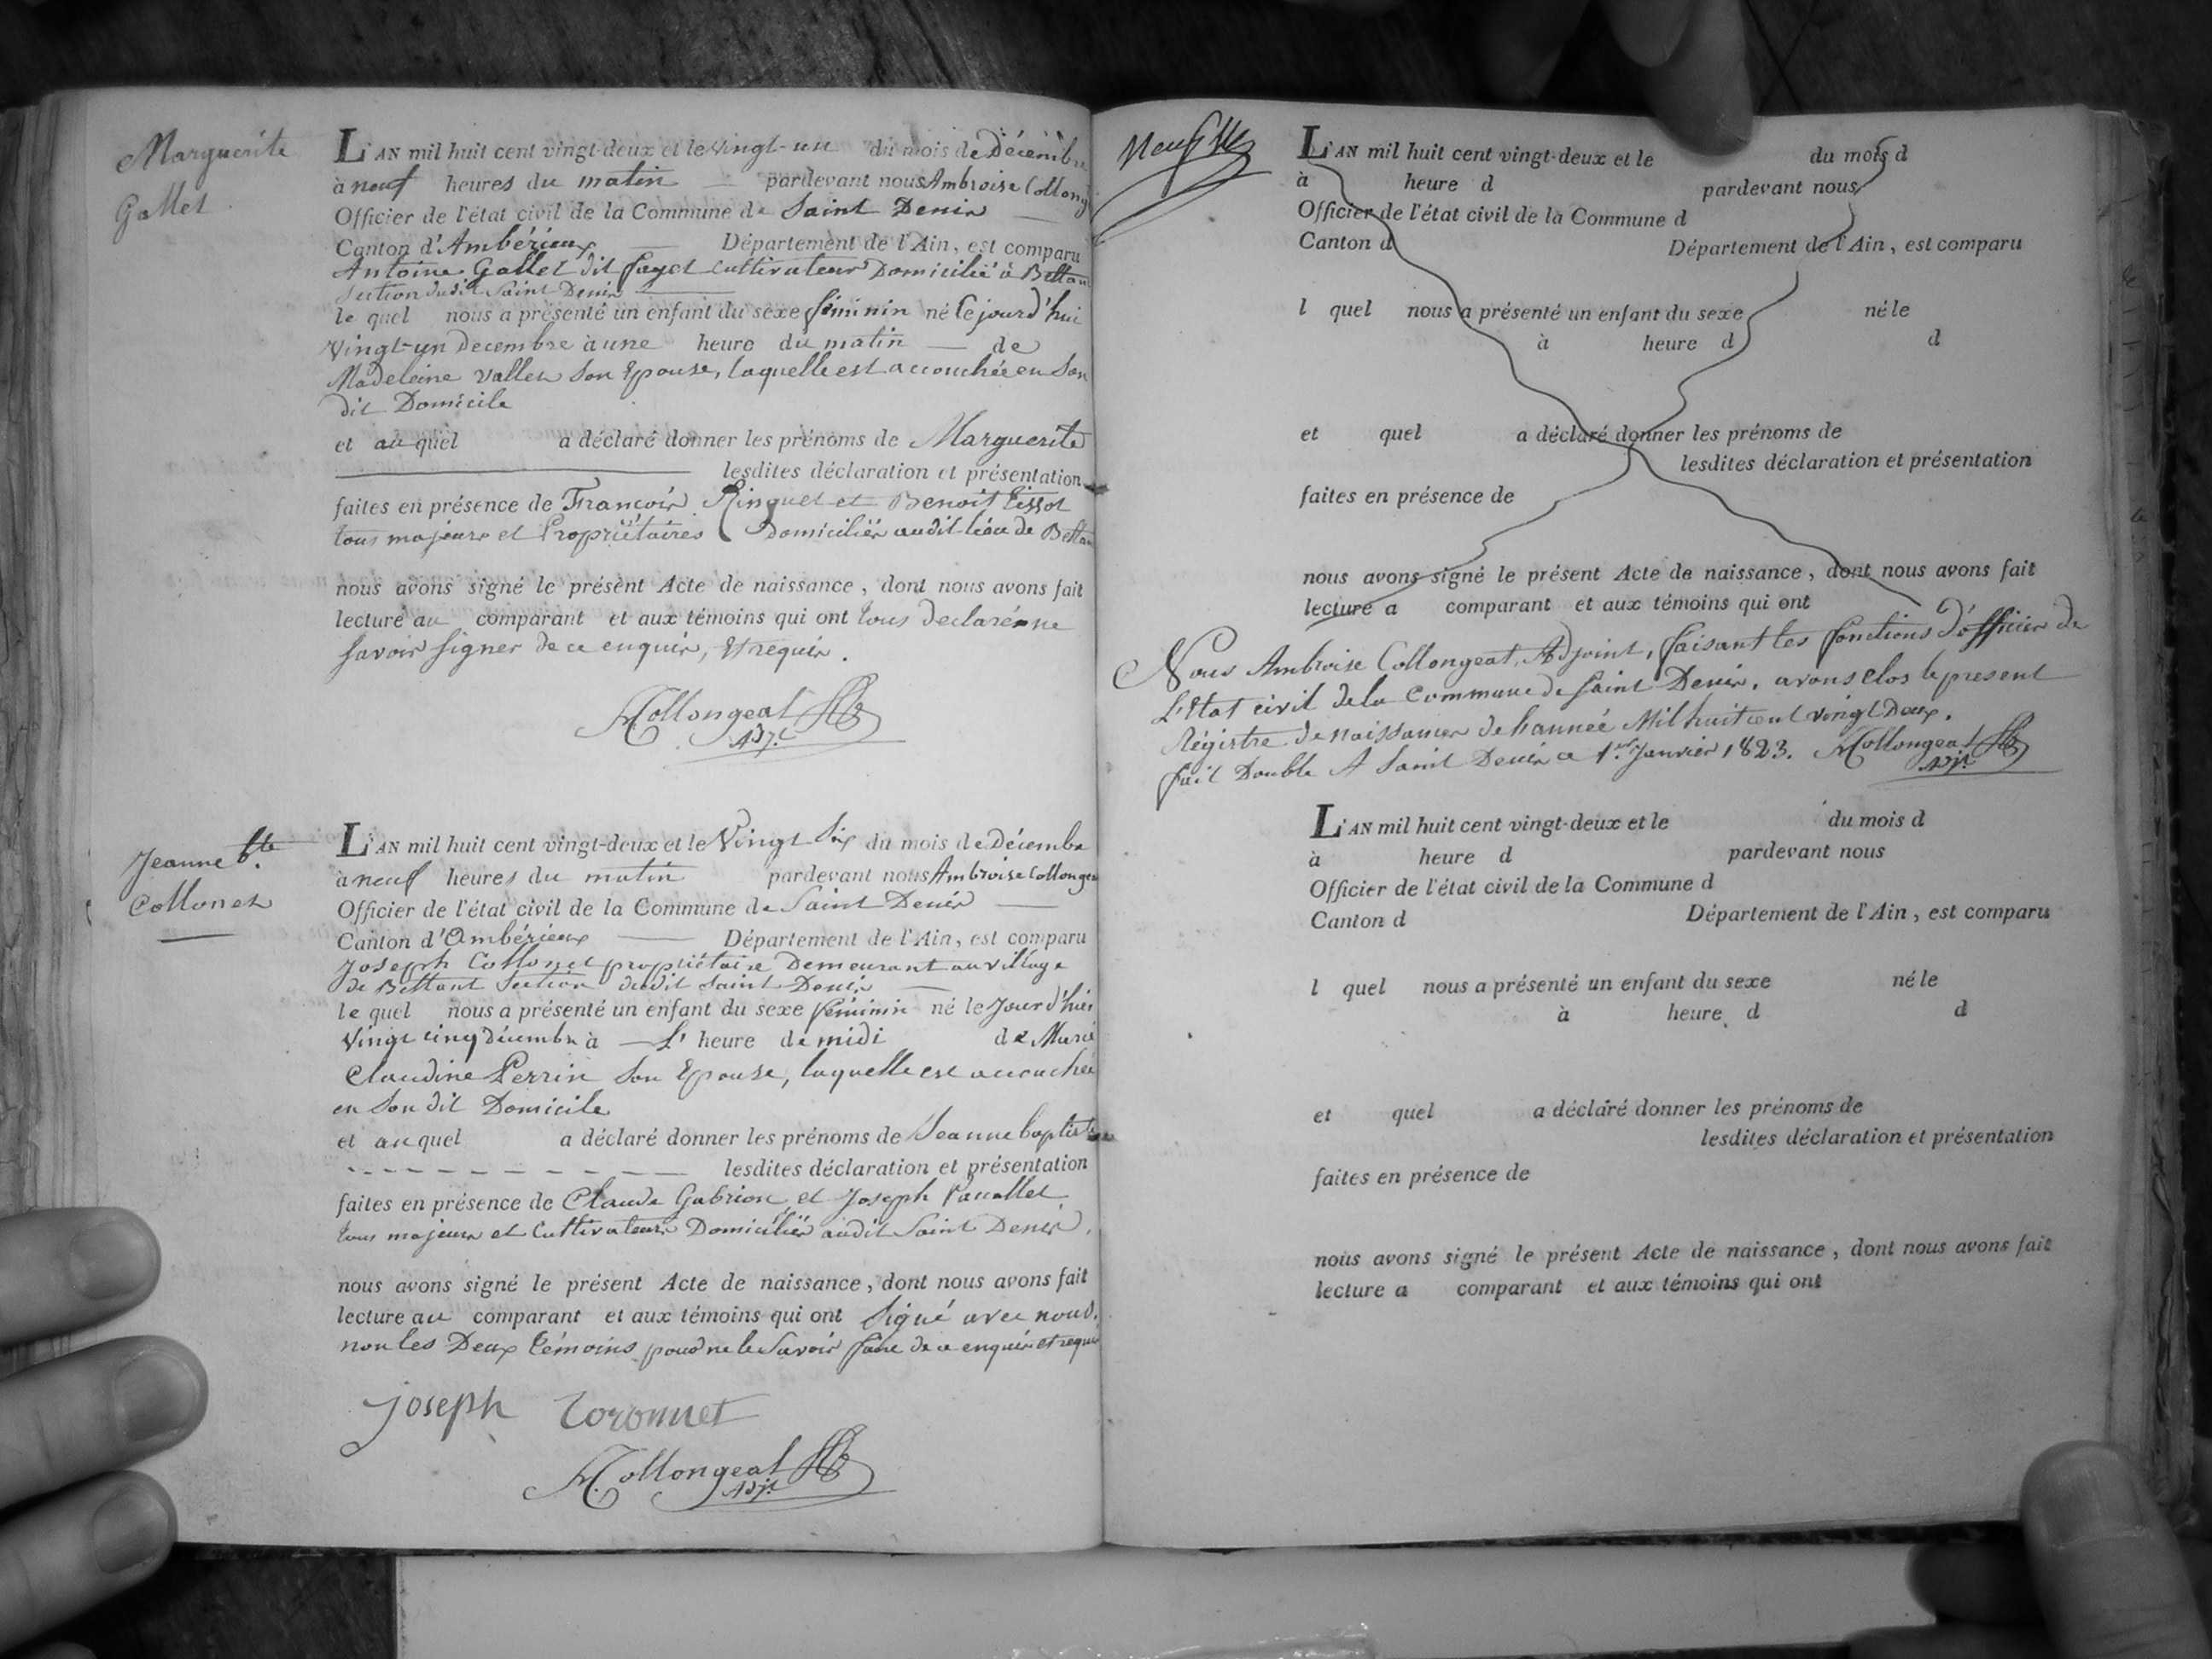 Marguerite
Gallet
L'AN mil huit cent vingt-deux et le vingt-un du mois de Décembre
à neuf heures du matin — pardevant nous Ambroise Collong
Officier de l'état civil de la Commune de Saint Denis —
Canton d'Ambérieux — Département de l'Ain, est comparu
Antoine Gallet dit fayet cultivateur Domicilié à Bettan
Section dudit Saint Denis —
le quel nous a présenté un enfant du sexe féminin né le jourd'hui
vingt-un decembre à une heure du matin — de
Madeleine vallet Son Epouse, laquelle est accouchée en Son
dit Domicile
et au quel a déclaré donner les prénoms de Marguerite
— lesdites déclaration et présentation
faites en présence de Francois Ringuet et Benoit tissot
tous majeurs et Propriétaires Domiciliés audit lieu de Bettan
nous avons signé le présent Acte de naissance, dont nous avons fait
lecture au comparant et aux témoins qui ont tous declaré ne
Savoir signer de ce enquis, et requis.
Collongeat
adj.t
Jeanne b.te
Collonet
L'AN mil huit cent vingt-deux et le Vingt Six du mois de Décembre
à neuf heures du matin pardevant nous Ambroise Collongea
Officier de l'état civil de la Commune de Saint Denis —
Canton d'Ambérieux — Département de l'Ain, est comparu
Joseph Collonet propriétaire Demeurant au village
de Bettant Section dudit Saint Denis —
le quel nous a présenté un enfant du sexe féminin né le Jourd'hui
Vingt cinq décembre à — L' heure de midi de Marie
Claudine Perrin Son Epouse, laquelle est accouchée
en Son dit Domicile
et au quel a déclaré donner les prénoms de Jeanne baptiste
— lesdites déclaration et présentation
faites en présence de Claude Gabrion et Joseph
tous majeurs et Cultivateurs Domiciliés audit Saint Denis.
nous avons signé le présent Acte de naissance, dont nous avons fait
lecture au comparant et aux témoins qui ont Signé avec nous.
non les Deux témoins pour ne le Savoir faire de ce enquis et requis
joseph coronnet
Collongeat
adj.t
L'AN mil huit cent vingt-deux et le du mois d
à heure d pardevant nous
Officier de l'état civil de la Commune d
Canton d Département de l'Ain, est comparu
l quel nous a présenté un enfant du sexe né le
à heure d d
et quel a déclaré donner les prénoms de
lesdites déclaration et présentation
faites en présence de
nous avons signé le présent Acte de naissance, dont nous avons fait
lecture a comparant et aux témoins qui ont
Nous Ambroise Collongeat, Adjoint, faisant les fonctions d'officier de
L'Etat civil de la Commune de Saint Denis, avons clos le present
Régistre de naissances de l'année Mil huit cent vingt Deux.
fait Double A Saint Denis ce 1.er Janvier 1823. Collongeat
adj.t
L'AN mil huit cent vingt-deux et le du mois d
à heure d pardevant nous
Officier de l'état civil de la Commune d
Canton d Département de l'Ain, est comparu
l quel nous a présenté un enfant du sexe né le
à heure d d
et quel a déclaré donner les prénoms de
lesdites déclaration et présentation
faites en présence de
nous avons signé le présent Acte de naissance, dont nous avons fait
lecture a comparant et aux témoins qui ont